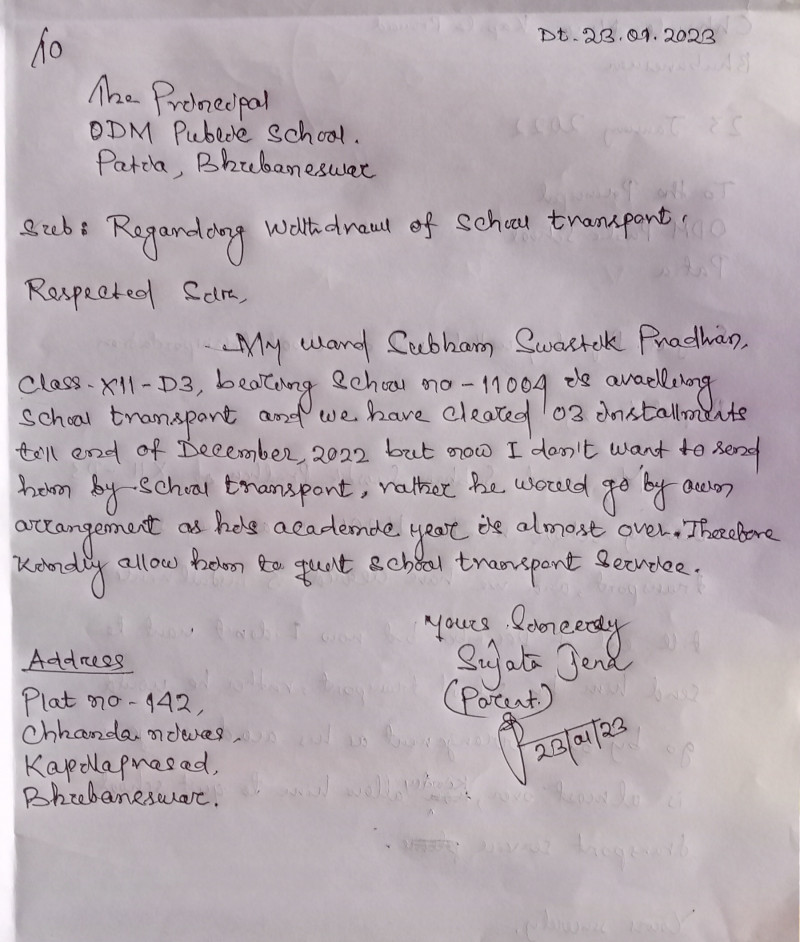 Dt. 23.01.2023
To
The Principal
ODM Public School.
Patia, Bhubaneswar
Sub: Regarding Withdrawl of School transport.
Respected Sir,
My ward Subham Swastik Pradhan,
Class-XII-D3, bearing School no-11004 is availing
School transport and we have cleared 03 installments
till end of December, 2022 but now I don't want to send
him by School transport, rather he would go by own
arrangement as his academic year is almost over. Therefore
Kindly allow him to quit school transport Service.
Yours Sincerely
Sujata Jena
(Parent.)
23/01/23
Address
Plat no-142,
Chhanda niwas,
Kapilaprasad,
Bhubaneswar.